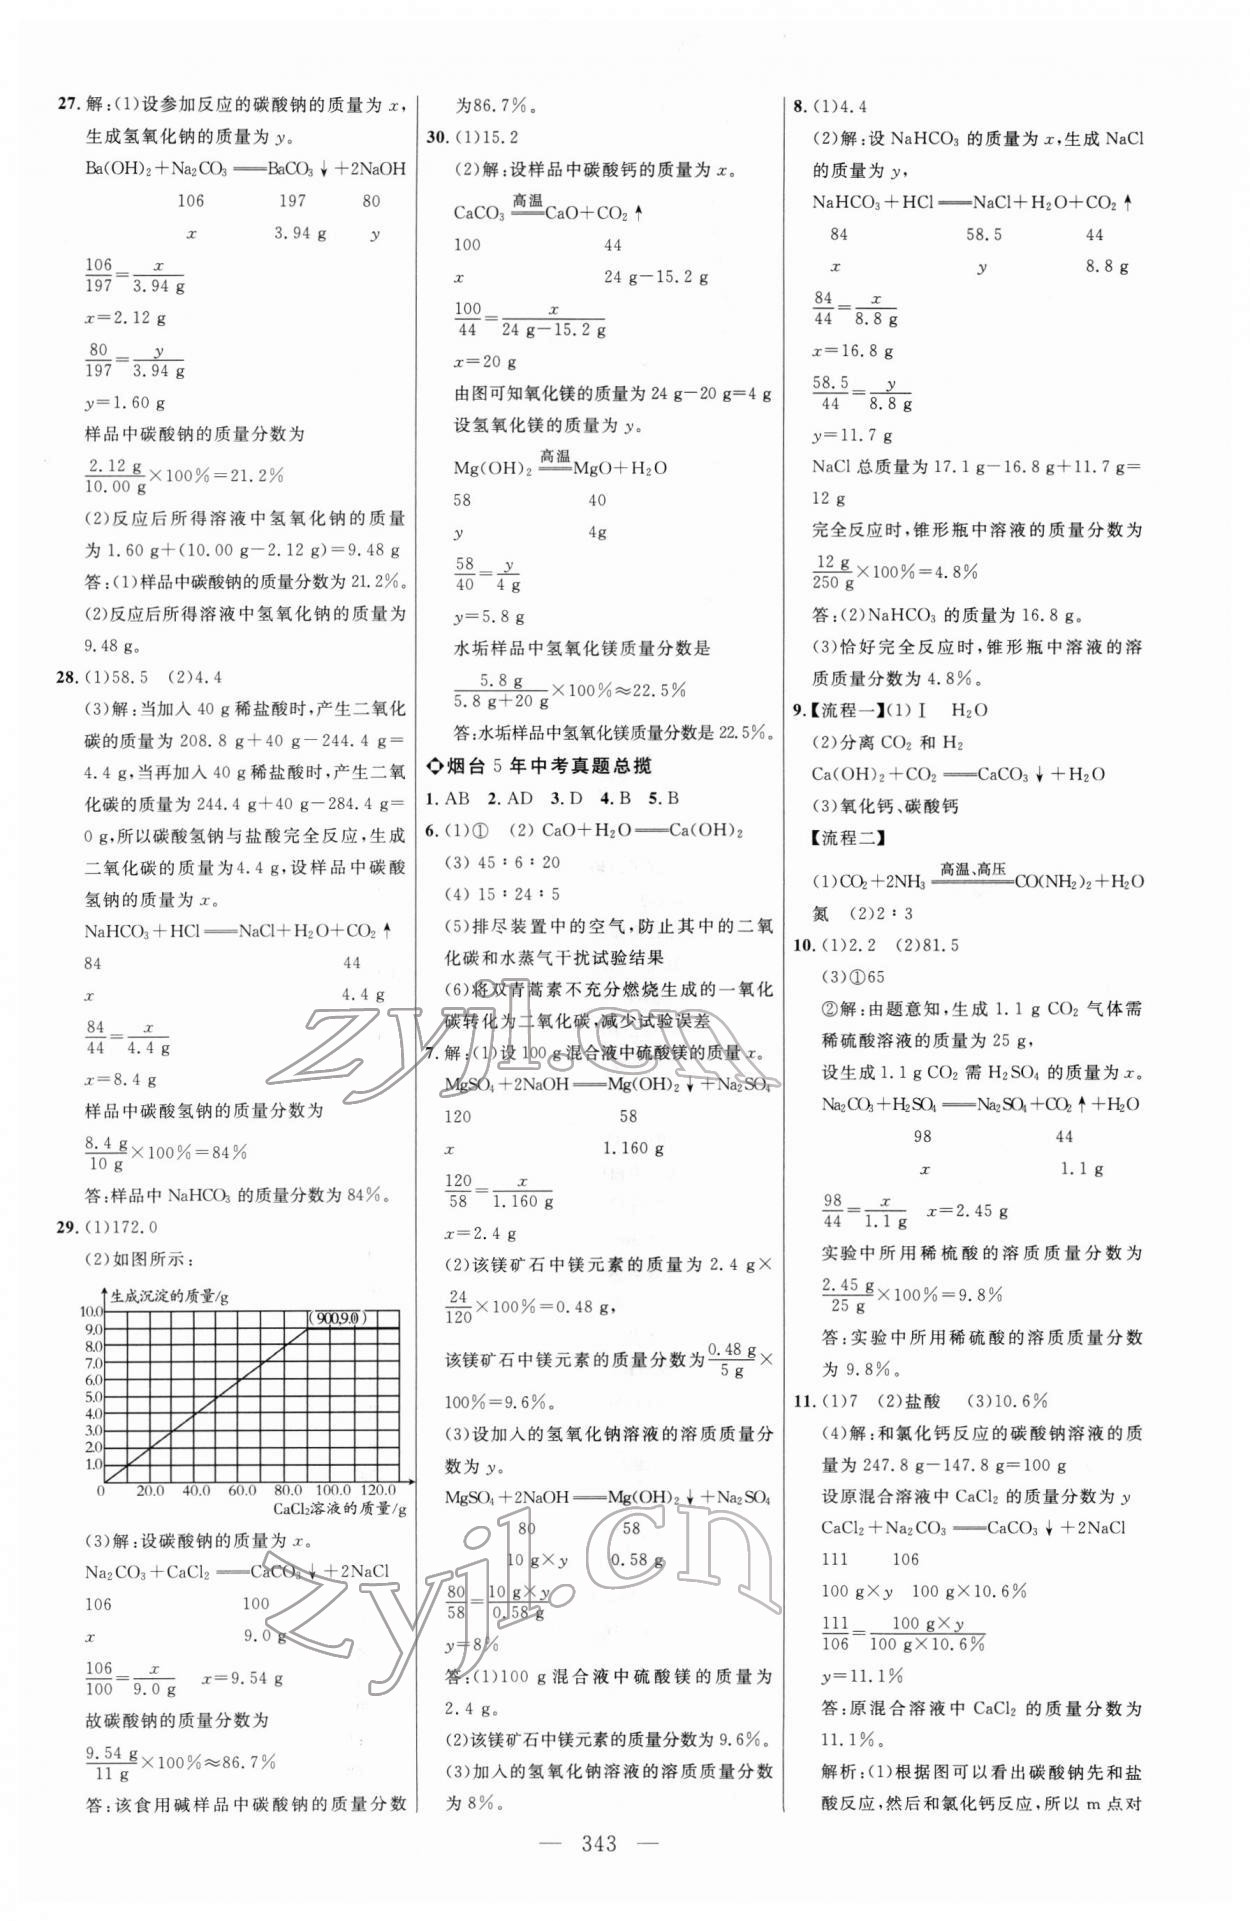 27. 解:(1)设参加反应的碳酸钠的质量为 x,
生成氢氧化钠的质量为 y。
Ba(OH)₂+Na₂CO₃══BaCO₃↓+2NaOH
106 197 80
x 3.94 g y
106/197=x/3.94 g
x=2.12 g
80/197=y/3.94 g
y=1.60 g
样品中碳酸钠的质量分数为
2.12 g/10.00 g×100%=21.2%
(2)反应后所得溶液中氢氧化钠的质量
为 1.60 g+(10.00 g-2.12 g)=9.48 g
答:(1)样品中碳酸钠的质量分数为 21.2%。
(2)反应后所得溶液中氢氧化钠的质量为
9.48 g。
28. (1)58.5 (2)4.4
(3)解:当加入 40 g稀盐酸时,产生二氧化
碳的质量为 208.8 g+40 g-244.4 g=
4.4 g,当再加入 40 g稀盐酸时,产生二氧
化碳的质量为 244.4 g+40 g-284.4 g=
0 g,所以碳酸氢钠与盐酸完全反应,生成
二氧化碳的质量为4.4 g,设样品中碳酸
氢钠的质量为 x。
NaHCO₃+HCl══NaCl+H₂O+CO₂↑
84 44
x 4.4 g
84/44=x/4.4 g
x=8.4 g
样品中碳酸氢钠的质量分数为
8.4 g/10 g×100%=84%
答:样品中 NaHCO₃ 的质量分数为 84%。
29. (1)172.0
(2)如图所示:
生成沉淀的质量/g
(900,9.0)
10.0
9.0
8.0
7.0
6.0
5.0
4.0
3.0
2.0
1.0
0 20.0 40.0 60.0 80.0 100.0 120.0
CaCl₂溶液的质量/g
(3)解:设碳酸钠的质量为 x。
Na₂CO₃+CaCl₂══CaCO₃↓+2NaCl
106 100
x 9.0 g
106/100=x/9.0 g x=9.54 g
故碳酸钠的质量分数为
9.54 g/11 g×100%≈86.7%
答:该食用碱样品中碳酸钠的质量分数
为86.7%。
30. (1)15.2
(2)解:设样品中碳酸钙的质量为 x。
CaCO₃═高温═CaO+CO₂↑
100 44
x 24 g-15.2 g
100/44=x/24 g-15.2 g
x=20 g
由图可知氧化镁的质量为 24 g-20 g=4 g
设氢氧化镁的质量为 y。
Mg(OH)₂═高温═MgO+H₂O
58 40
y 4g
58/40=y/4 g
y=5.8 g
水垢样品中氢氧化镁质量分数是
5.8 g/5.8 g+20 g×100%≈22.5%
答:水垢样品中氢氧化镁质量分数是 22.5%。
烟台 5 年中考真题总揽
1. AB 2. AD 3. D 4. B 5. B
6. (1)① (2) CaO+H₂O══Ca(OH)₂
(3) 45∶6∶20
(4) 15∶24∶5
(5)排尽装置中的空气,防止其中的二氧
化碳和水蒸气干扰试验结果
(6)将双青蒿素不充分燃烧生成的一氧化
碳转化为二氧化碳,减少试验误差
7. 解:(1)设 100 g混合液中硫酸镁的质量 x。
MgSO₄+2NaOH══Mg(OH)₂↓+Na₂SO₄
120 58
x 1.160 g
120/58=x/1.160 g
x=2.4 g
(2)该镁矿石中镁元素的质量为 2.4 g×
24/120×100%=0.48 g,
该镁矿石中镁元素的质量分数为0.48 g/5 g×
100%=9.6%。
(3)设加入的氢氧化钠溶液的溶质质量分
数为 y。
MgSO₄+2NaOH══Mg(OH)₂↓+Na₂SO₄
80 58
10 g×y 0.58 g
80/58=10 g×y/0.58 g
y=8%
答:(1)100 g 混合液中硫酸镁的质量为
2.4 g。
(2)该镁矿石中镁元素的质量分数为 9.6%。
(3)加入的氢氧化钠溶液的溶质质量分数
为 8%。
8. (1)4.4
(2)解:设 NaHCO₃ 的质量为 x,生成 NaCl
的质量为 y,
NaHCO₃+HCl══NaCl+H₂O+CO₂↑
84 58.5 44
x y 8.8 g
84/44=x/8.8 g
x=16.8 g
58.5/44=y/8.8 g
y=11.7 g
NaCl 总质量为 17.1 g-16.8 g+11.7 g=
12 g
完全反应时,锥形瓶中溶液的质量分数为
12 g/250 g×100%=4.8%
答:(2)NaHCO₃ 的质量为 16.8 g。
(3)恰好完全反应时,锥形瓶中溶液的溶
质质量分数为 4.8%。
9.【流程一】(1) Ⅰ H₂O
(2)分离 CO₂ 和 H₂
Ca(OH)₂+CO₂══CaCO₃↓+H₂O
(3)氧化钙、碳酸钙
【流程二】
(1)CO₂+2NH₃═高温、高压═CO(NH₂)₂+H₂O
氮 (2)2∶3
10. (1)2.2 (2)81.5
(3)①65
②解:由题意知,生成 1.1 g CO₂ 气体需
稀硫酸溶液的质量为 25 g,
设生成 1.1 g CO₂ 需 H₂SO₄ 的质量为 x。
Na₂CO₃+H₂SO₄══Na₂SO₄+CO₂↑+H₂O
98 44
x 1.1 g
98/44=x/1.1 g x=2.45 g
实验中所用稀梳酸的溶质质量分数为
2.45 g/25 g×100%=9.8%
答:实验中所用稀硫酸的溶质质量分数
为 9.8%。
11. (1)7 (2)盐酸 (3)10.6%
(4)解:和氯化钙反应的碳酸钠溶液的质
量为 247.8 g-147.8 g=100 g
设原混合溶液中 CaCl₂ 的质量分数为 y
CaCl₂+Na₂CO₃══CaCO₃↓+2NaCl
111 106
100 g×y 100 g×10.6%
111/106=100 g×y/100 g×10.6%
y=11.1%
答:原混合溶液中 CaCl₂ 的质量分数为
11.1%。
解析:(1)根据图可以看出碳酸钠先和盐
酸反应,然后和氯化钙反应,所以 m 点对
— 343 —
zyjl.cn
zyjl.cn